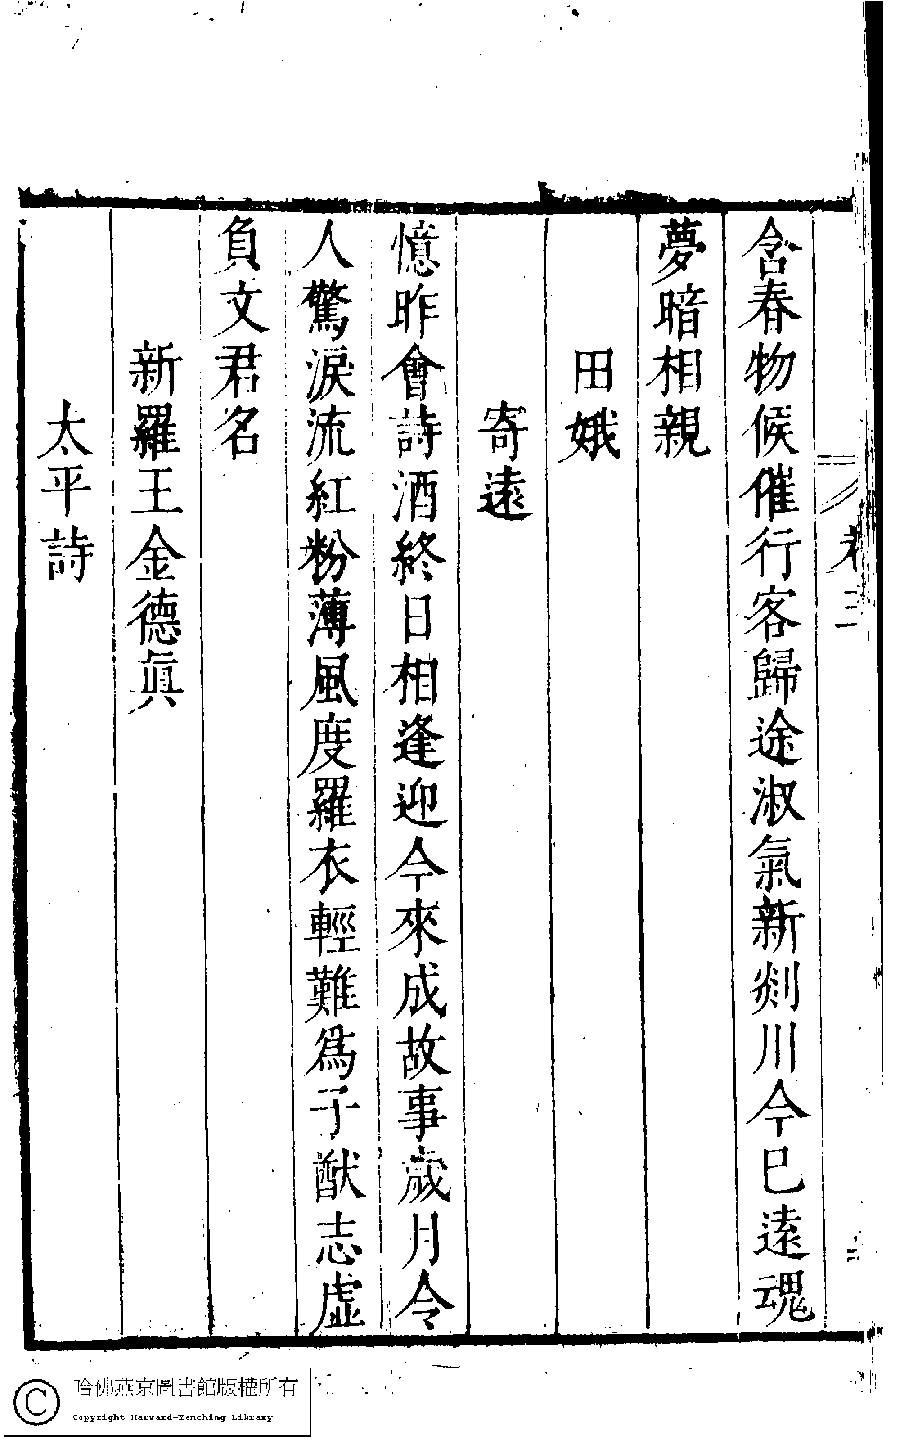 含春物候催行客歸途淑氣新剡川今已遠魂
夢暗相親
田娥
寄遠
憶昨會詩酒終日相逢迎今來成故事歲月令
人驚淚流紅粉薄風度羅衣輕難爲子猷志虛
負文君名
新羅王金德眞
太平詩
哈佛燕京圖書館版權所有
Copyright Harvard-Yenching Library